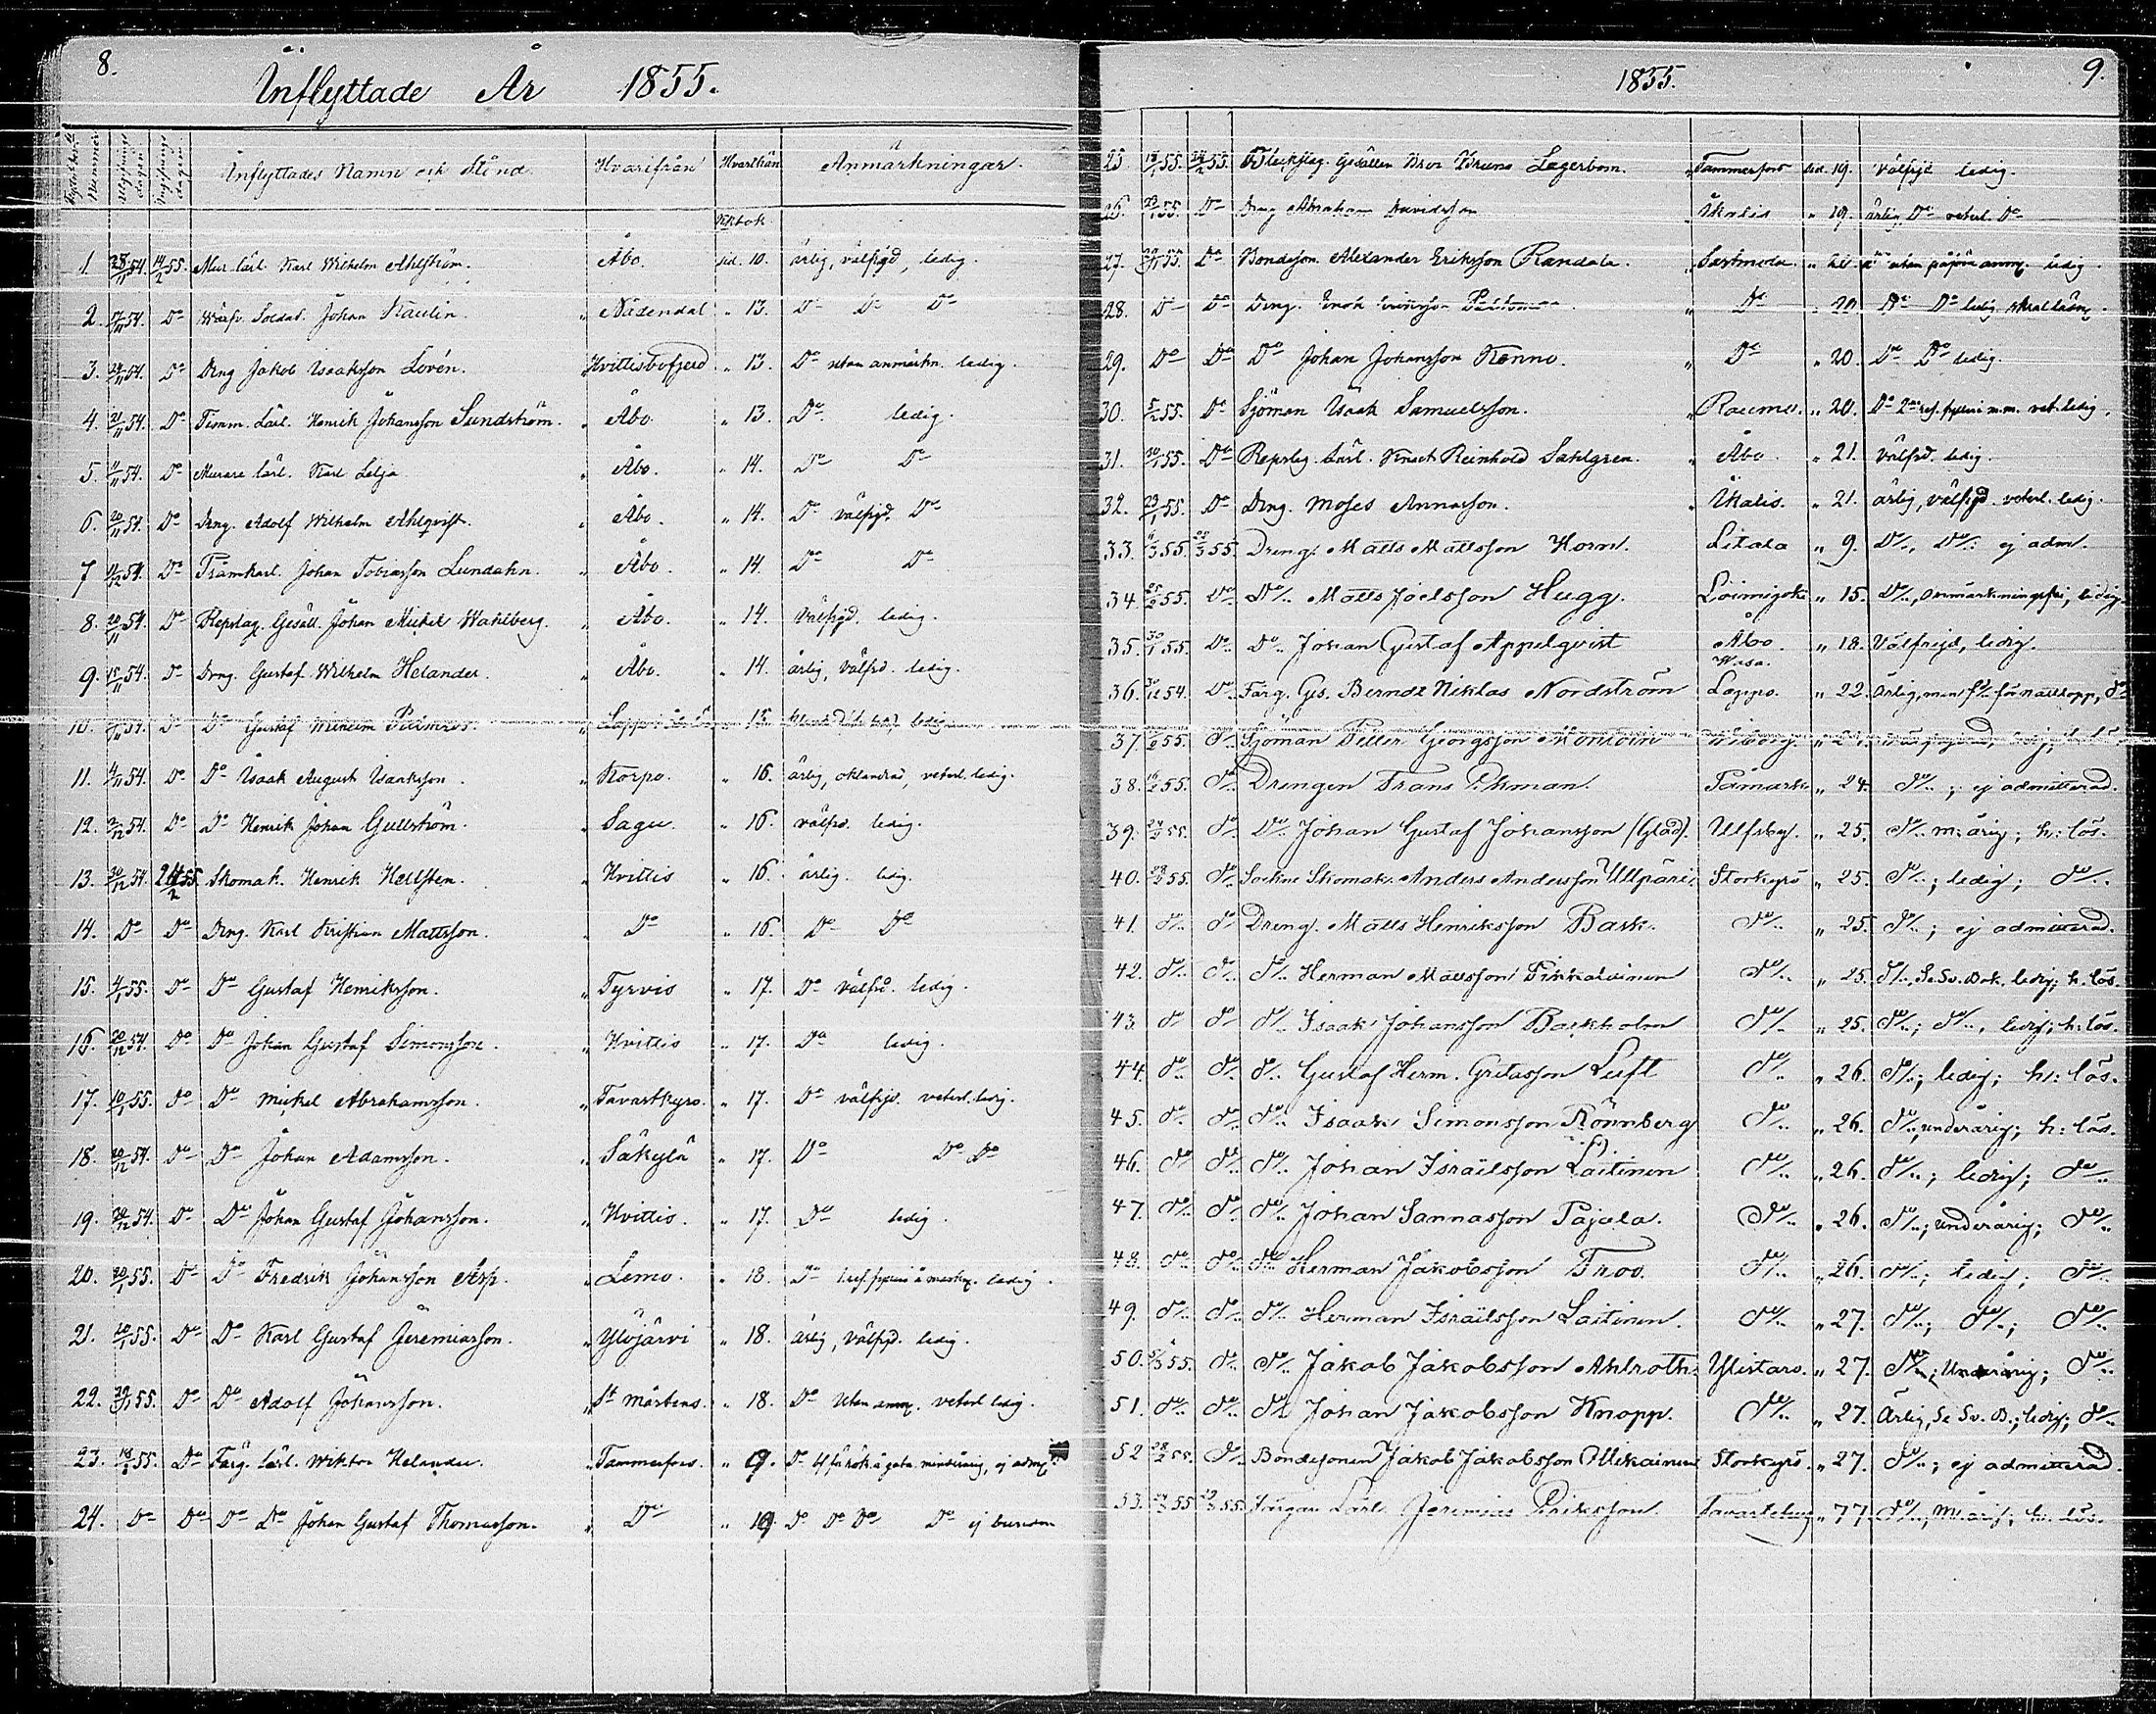 8.
Inflyttade År 1855.
Inflyttades Namn och Stånd. Hvarifrån Hvarthän Anmärkningar.
Kkbok
1. 28/11 54. 14/2 55. Mur. lärl. Karl Wilhelm Ahlström. Åbo. sid. 10. ärlig, välfrejd, ledig.
2. 17/11 54. Do Wärfv. Soldat. Johan Kaulin. " Nådendal " 13. Do Do Do
3. 24/11 54. Do Dräng Jakob Isaaksson Lovén. Hvittisbofjerd " 13. Do utan anmärkn. ledig.
4. 21/11 54. Do Timm. Lärl. Henrik Johansson Sundström. " Åbo. " 13. Do ledig.
5. 11/11 54. Do Murare lärl. Karl Lilja " Åbo. " 14. Do Do
6. 20/11 54. Do Dreng. Adolf Wilhelm Ahlqvist. " Åbo. " 14. Do välfrjd. Do
7 11/12 54. Do Pråmkarl. Johan Tobiasson Lundahn. " Åbo. " 14. Do Do
8. 20/11 54. Do Repslag. Gesäll. Johan Mickel Wahlberg. " Åbo. " 14. Välfrejd. ledig.
9. 15/11 54. Do Drng. Gustaf Wilhelm Helander. " Åbo. " 14. ärlig, välfrd. ledig.
10. Do Do Gustaf Wilhelm " Lappi " 15. ledig
11. 4/11 54. Do Do Isaak August Isaaksson. " Korpo. " 16. ärlig, oklandrad, veterl. ledig.
12. 2/12 54. Do Do Henrik Johan Gullström. " Sagu. " 16. välfrd. ledig.
13. 30/12 54. 24/2 55. Skomak. Henrik Hellsten. " Hvittis " 16. ärlig. ledig.
14. Do Do Drng. Karl Kristian Mattsson. " Do " 16. Do Do
15. 4/1 55. Do Do Gustaf Henriksson. " Tyrvis " 17. Do välfrd. ledig.
16. 20/12 54. Do Do Johan Gustaf Simonsson. " Hvittis " 17. Do ledig.
17. 10/1 55. Do Do Mickel Abrahamsson. " Tavastkyro. " 17. Do välfrjd. veterl. ledig.
18. 20/12 54. Do Do Johan Adamsson. " Säkylä " 17. Do Do Do
19. 20/12 54. Do Do Johan Gustaf Johansson. " Hvittis. " 17. Do ledig.
20. 20/1 55. Do Do Fredrik Johansson Asp. " Lemo. " 18. Do ledig.
21. 10/1 55. Do Do Karl Gustaf Jeremiasson. " Ylöjärvi " 18. ärlig, välfrjd. ledig.
22. 29/1 55. Do Do Adolf Johansson. " St Mårtens. " 18. Do utan anm. veterl. ledig.
23. 18/1 55. Do Färg. lärl. Wiktor Helander. " Tammerfors. " 9. Do minderårig, ej adm.
24. Do Do Do Do Johan Gustaf Thomasson. " Do " 19 Do Do Do Do ej
1855. 9.
25. 18/1 55. 24/2 55. Bleckslag. Gesällen Bror Bruno Lagerbom. " Tammerfors sid. 19. välfrjd ledig.
26. 23/1 55. Do Drng Abraham Davidsson " Ikalis " 19. ärlig, Do veterl. Do
27. Do Bondeson. Alexander Eriksson Randala. " Sastmola. ledig.
28. Do Do Dreng. Enok " Do " 20 Do Do ledig.
29. Do Do Do Johan Johansson Kenno. " Do " 20. Do Do ledig.
30. 5/2 55. Do Sjöman Isaak Samuelsson. " Raumo. " 20. Do m.m. vet. ledig.
31. 30/1 55. Do Repslag. Lärl. Knut Reinhold Sahlgren. " Åbo " 21. välfrd. ledig.
32. 23/1 55. Do Drng. Moses Annasson. " Ikalis. " 21. ärlig, välfrjd veterl. ledig.
33. 11/3 55. 25/3 55. Dreng. Matts Mattsson Horn. Letala " 9. Do., Do.: ej adm.
34. 25/2 55. Do. Do. Matts Joelsson Hugg. Loimijoki " 15. Do., anmärkningsfri, ledig.
35. 30/1 55. Do. Do. Johan Gustaf Appelqvist Åbo. " 18. Välfrejd, ledig.
Wasa.
36. 54. Do. Färg. Gs. Berndt Niklas Nordström Lappo. " 22. Ärlig, men
37. 55. Do. Sjöman Petter Georgsson Wiborg.
38. 16/2 55. Do. Drengen Frans Påmark. " 24. Do.; ej admitterad.
39. 24/2 55. Do. Do. Johan Gustaf Johansson (Glad). Ulfsby. " 25. Do. m: årig; h: lös.
40. 28/2 55. Do. Sockne Skomak. Anders Andersson Ullpäri. Storkyrö " 25. Do.; ledig; Do.
41. Do. Do Dreng. Matts Henriksson Bask. Do. " 25. Do.; ej admitterad.
42. Do. Do. Do. Herman Mattsson Pikkalainen Do. " 25. Do., Se Sv. Bok, ledig; h: lös.
43. Do Do Do. Isaak Johansson Backholm Do. " 25. Do.; Do., ledig; h: lös.
44. Do. Do. Do. Gustaf Herm. Gretasson Luft Do. " 26. Do.; ledig; h: lös.
45. Do Do. Do. Isaak Simonsson Rönnberg Do. " 26. Do., underårig; h: lös.
46. Do Do. Do. Johan Israëlsson Laitinen Do. " 26. Do.; ledig; Do.
47. Do. Do. Do. Johan Sannasson Pajala. Do. " 26. Do.; underårig; Do.
48. Do Do. Do. Herman Jakobsson Troo. Do. " 26. Do.; ledig; Do.
49. Do. Do. Do. Herman Israëlsson Laitinen. Do. " 27. Do.; Do.; Do.
50. 5/3 55. Do. Do. Jakob Jakobsson Ahlroth. Ylistaro. " 27. Do.; Underårig; Do.
51. Do. Do. Do. Johan Jakobsson Knopp. Do. " 27. Ärlig, Se Sv. B.; ledig; Do.
52 28/2 55. Do. Bondesonen Jakob Jakobsson Ullikainen Storkyrö. " 27. Do.; ej admitterad.
53. 55. 55. Färgar Lärl. Jeremias Eriksson. Tavastehus " 77. Do., M: årig; h: lös.